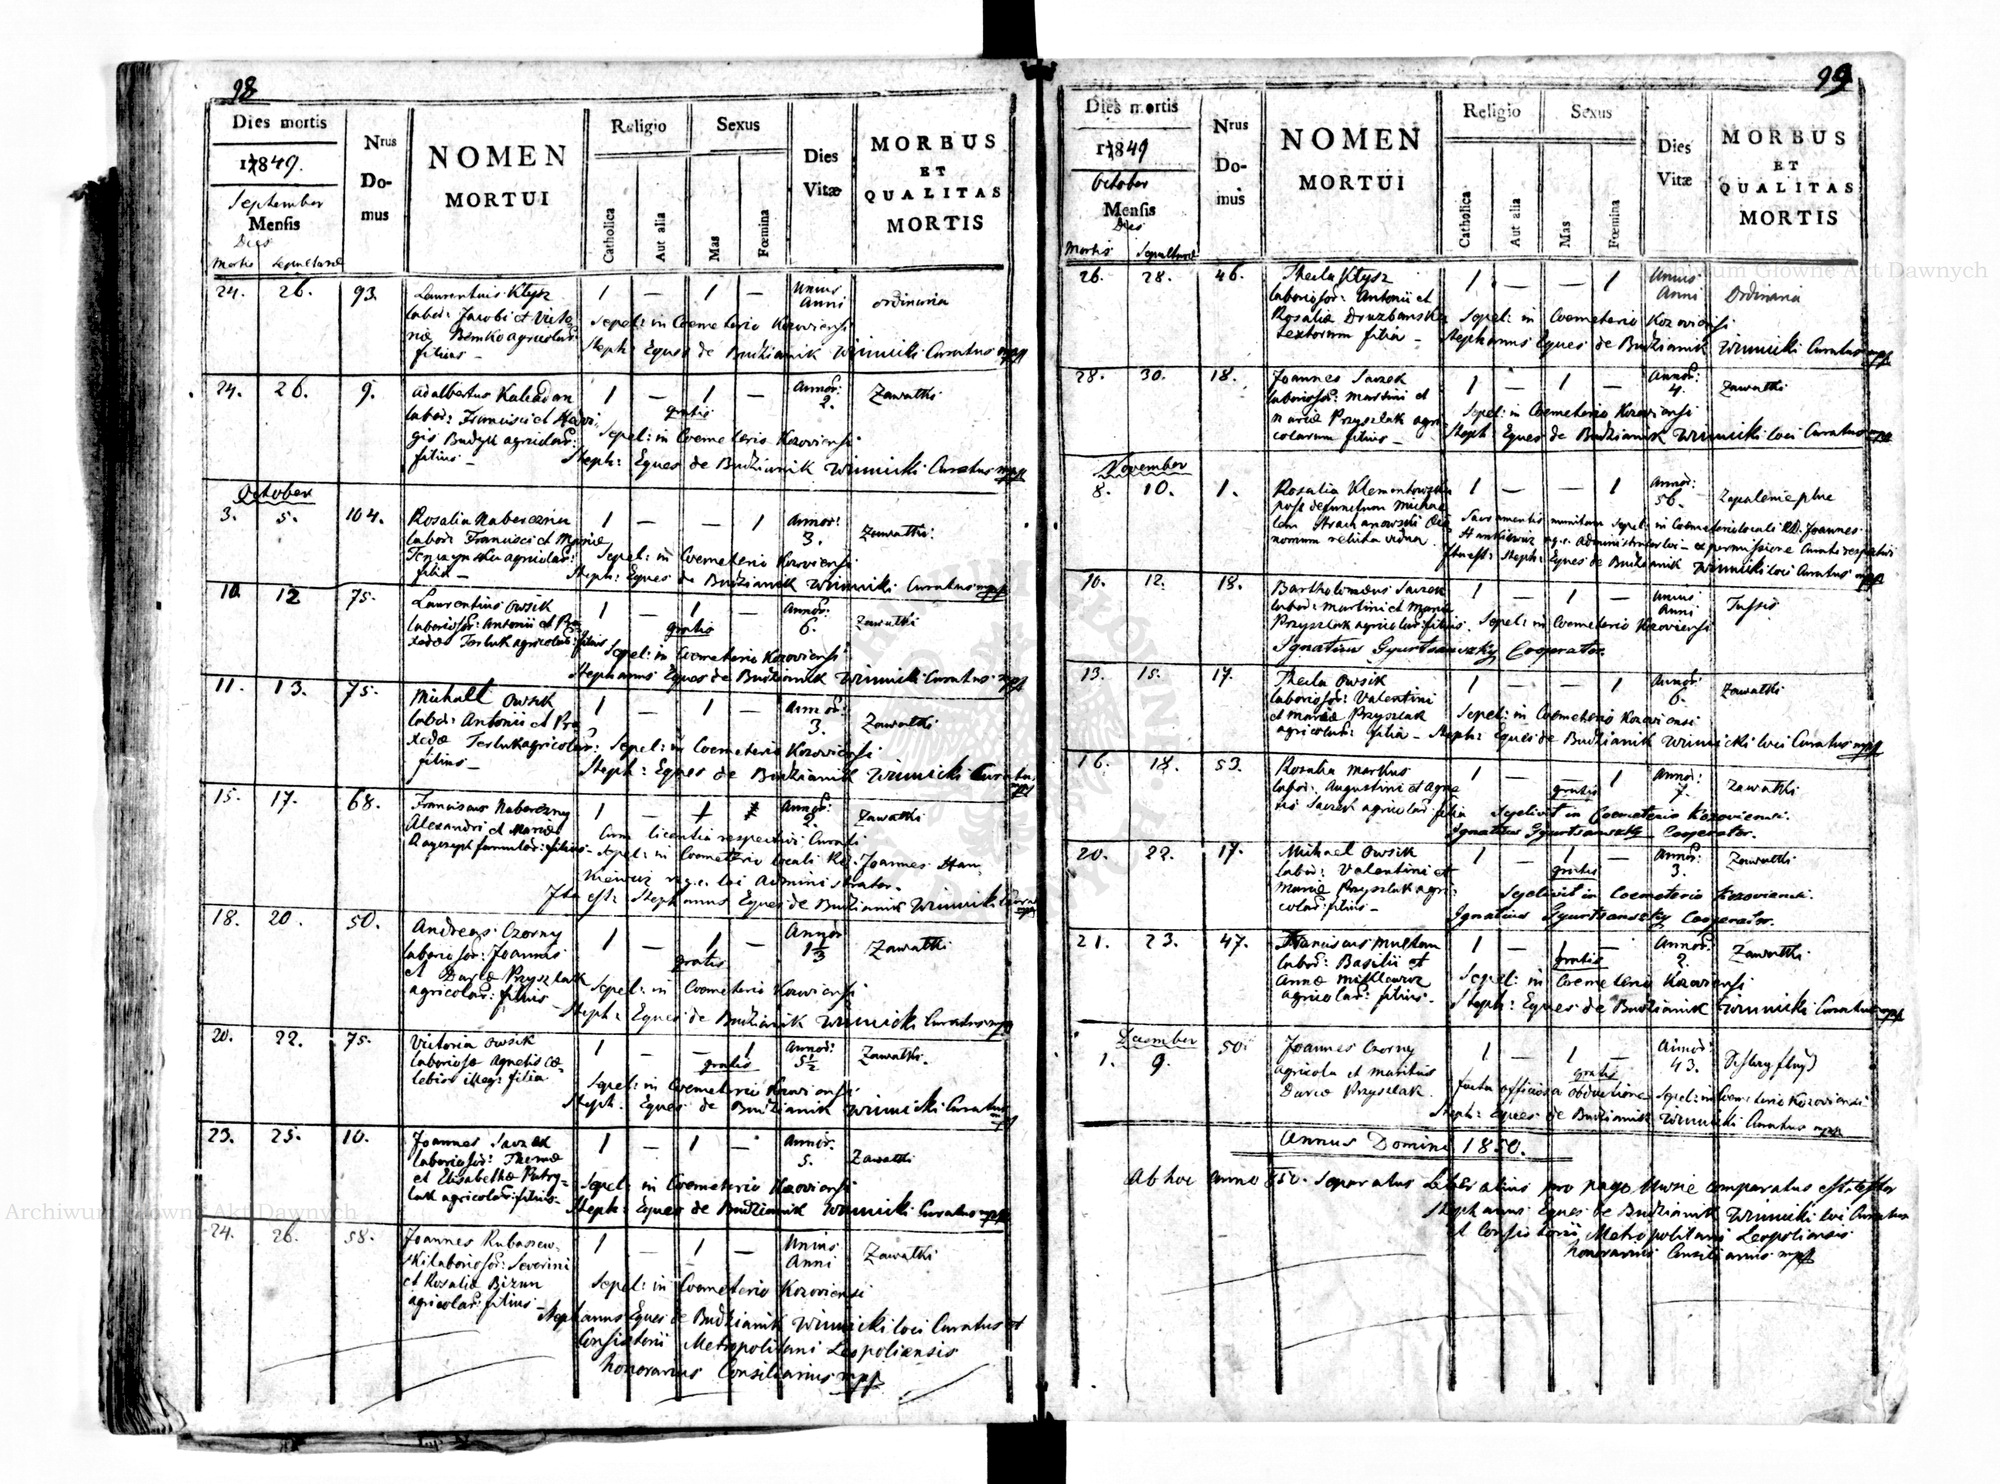 98
Dies mortis
1849.
September
Mensis
Dies
Mortis Sepulturae
Nrus
Do-
mus
NOMEN
MORTUI
Religio
Catholica
Aut alia
Sexus
Mas
Fœmina
Dies
Vitæ
MORBUS
ET
QUALITAS
MORTIS
24. 26. 93. Laurentius Kłysz 1 — 1 — Unius Anni ordinaria
labor: Jacobi et Victo-
riae Bomko agricolar:
filius —
Sepel: in Coemeterio Kozoviensi
Steph: Eques de Budzianik Winnicki Curatus mpp
24. 26. 9. Adalbertus 1 — 1 — Annor: 2. Zawałki
labor: Francisci et Hedvi-
gis Budyk agricolar:
filius —
gratis
Sepel: in Coemeterio Kozoviensi
Steph: Eques de Budzianik Winnicki Curatus mpp
October
3. 5. 104. Rosalia 1 — — 1 Annor: 3. Zawałki.
labor: Francisci et Mariae
agricolar:
filia —
Sepel: in Coemeterio Kozoviensi
Steph: Eques de Budzianik Winnicki Curatus mpp
10 12 75. Laurentius Owsik 1 — 1 — Annor: 6. Zawałki
laboriosor: Antonii et Pra-
xedae Terluk agricolar: filius
gratis
Sepel: in Coemeterio Kozoviensi
Stephanus Eques de Budzianik Winnicki Curatus mpp
11. 13. 75. Michael Owsik 1 — 1 — Annor: 3. Zawałki
labor: Antonii et Pra-
xedae Terluk agricolar:
filius —
Sepel: in Coemeterio Kozoviensi
Steph: Eques de Budzianik Winnicki Curatus mpp
15. 17. 68. Franciscus Nabereżny 1 — 1 Annor: 2. Zawałki
Alexandri et Mariae
famulor: filius —
Cum licentia respectivi Curati
Sepel: in Coemeterio locali Rd: Joannes Han-
kiewicz r. g. c. loci Administrator.
Ita est: Stephanus Eques de Budzianik Winnicki Curatus mpp
18. 20. 50. Andreas Czorny 1 — 1 — Annor 1⅓ Zawałki
laboriosor: Joannis
et Dariae Przyszlak
agricolar: filius —
gratis
Sepel: in Coemeterio Kozoviensi
Steph: Eques de Budzianik Winnicki Curatus mpp
20. 22. 75. Victoria Owsik 1 — — 1 Annor: 5½ Zawałki.
laboriosae Agnetis cae-
libis illeg: filia
gratis
Sepel: in Coemeterio Kozoviensi
Steph: Eques de Budzianik Winnicki Curatus mpp
23. 25. 10. Joannes Saczek 1 — 1 — Annor: 5. Zawałki
laboriosor: Thomae
et Elisabethae Patry-
lak agricolar: filius —
Sepel: in Coemeterio Kozoviensi
Steph: Eques de Budzianik Winnicki Curatus mpp
24. 26. 58. Joannes Kubaszew- 1 — 1 — Unius Anni Zawałki
ski laboriosor: Severini
et Rosaliae Bizun
agricolar: filius —
Sepel: in Coemeterio Kozoviensi
Stephanus Eques de Budzianik Winnicki loci Curatus et
Consistorii Metropolitani Leopoliensis
honorarius Consiliarius mpp
99
Dies mortis
1849
October
Mensis
Dies
Mortis Sepulturae
Nrus
Do-
mus
NOMEN
MORTUI
Religio
Catholica
Aut alia
Sexus
Mas
Fœmina
Dies
Vitæ
MORBUS
ET
QUALITAS
MORTIS
26. 28. 46. Thecla Kłysz 1 — — 1 Unius Anni Ordinaria
laboriosor: Antonii et
Rosaliae Druzbanska
textorum filia —
Sepel: in Coemeterio Kozoviensi
Stephanus Eques de Budzianik Winnicki Curatus mpp
28. 30. 18. Joannes Saczek 1 — 1 — Annor: 4. Zawałki
laboriosor: Martini et
Mariae Przyszlak agri-
colarum filius —
Sepel: in Coemeterio Kozoviensi
Steph: Eques de Budzianik Winnicki loci Curatus mpp
November
8. 10. 1. Rosalia Klementowska 1 — — 1 Annor: 56. Zapalenie płuc
post defunctum Michae-
lem
nomum relicta vidua.
Sacramentis munitam Sepel: in Coemeterio locali Rd: Joannes
Hankiewicz r. g. c. Administrator loci — ex permissione Curati respectivi
Ita est: Steph: Eques de Budzianik Winnicki loci Curatus mpp
10. 12. 18. Bartholomaeus Saczek 1 — 1 — Unius Anni Tussis
labor: Martini et Mariae
Przyszlak agricolar: filius.
Sepel: in Coemeterio Kozoviensi
Ignatius Cooperator.
13. 15. 17. Thecla Owsik 1 — — 1 Annor: 6. Zawałki
laboriosor: Valentini
et Mariae Przyszlak
agricolar: filia —
Sepel: in Coemeterio Kozoviensi
Steph: Eques de Budzianik Winnicki loci Curatus mpp
16. 18. 53. Rosalia Markus 1 — — 1 Annor: 7. Zawałki
labor: Augustini et Agne-
tis Saczek agricolar: filia
gratis
Sepelivit in Coemeterio Kozoviensi.
Ignatius Cooperator.
20. 22. 17. Michael Owsik 1 — 1 — Annor: 3. Zawałki
labor: Valentini et
Mariae Przyszlak agri-
colar: filius —
gratis
Sepelivit in Coemeterio Kozoviensi.
Ignatius Cooperator.
21. 23. 47. Franciscus Multan 1 — 1 — Annor: 2. Zawałki
labor: Basilii et
Annae Miśkiewicz
agricolar: filius —
gratis
Sepel: in Coemeterio Kozoviensi
Steph: Eques de Budzianik Winnicki Curatus mpp
December
1. 9. 50. Joannes Czorny 1 — 1 — Annor: 43.
agricola et maritus
Dariae Przyszlak.
gratis
facta officiosa obductione Sepel: in Coemeterio Kozoviensi
Steph: Eques de Budzianik Winnicki Curatus mpp
Annus Domini 1850.
Ab hoc anno 850. Separatus Liber alius pro pago comparatus est testor
Stephanus Eques de Budzianik Winnicki loci Curatus
et Consistorii Metropolitani Leopoliensis
honorarius Consiliarius mpp
Archiwum Główne Akt Dawnych
Archiwum Główne Akt Dawnych